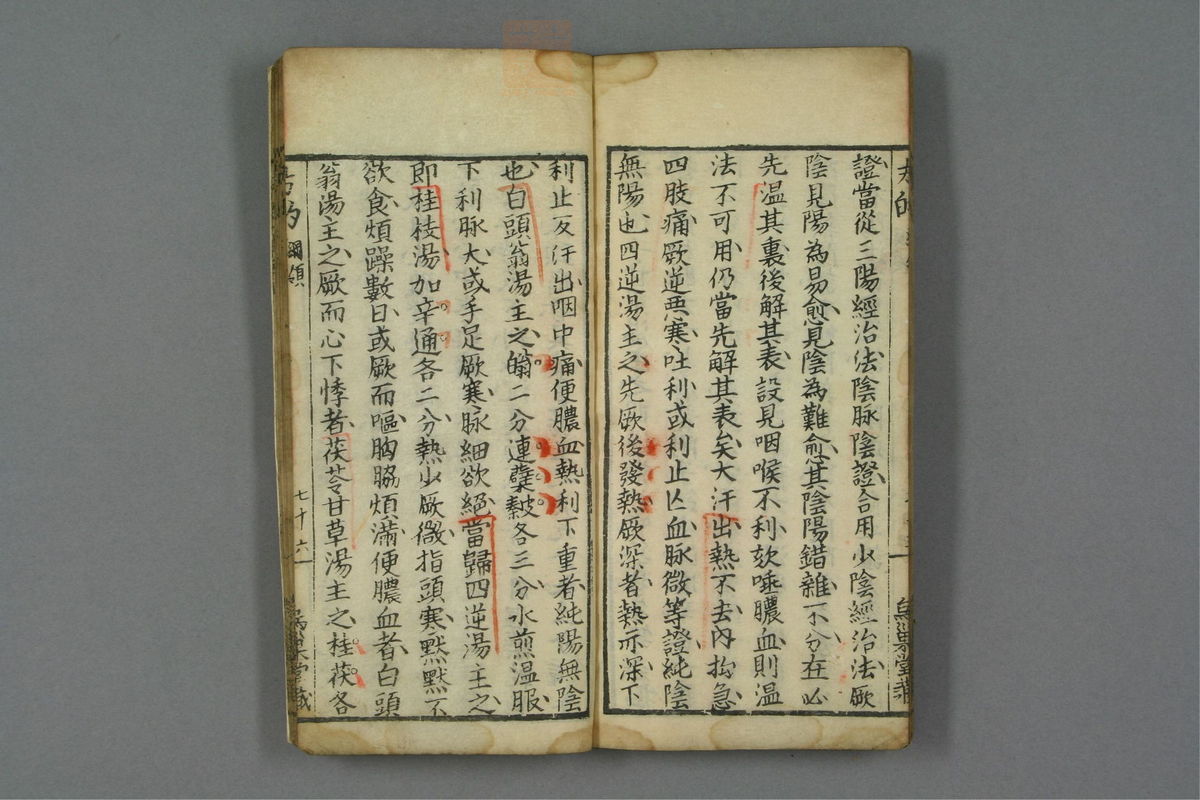 證當從三陽經治法陰脉陰證合用少陰經治法厥
陰見陽為易愈見陰為難愈其陰陽錯雜不分在必
先温其裏後解其表設見咽喉不利欬唾膿血則温
法不可用仍當先解其表矣大汗出熱不去內拘急
四肢痛厥逆悪寒吐利或利止亾血脉微等證純陰
無陽也四逆湯主之先厥後發熱厥深者熱亦深下
利止反汗出咽中痛便膿血熱利下重者純陽無陰
也白頭翁湯主之翁二分連蘗皷各三分水煎温服
下利脉大或手足厥寒脉細欲絕當歸四逆湯主之
即桂枝湯加辛通各二分熱少厥微指頭寒黙黙不
欲食煩躁數日或厥而嘔胸脇煩滿便膿血者白頭
翁湯主之厥而心下悸者茯苓甘草湯主之桂茯各
綱領
七十六